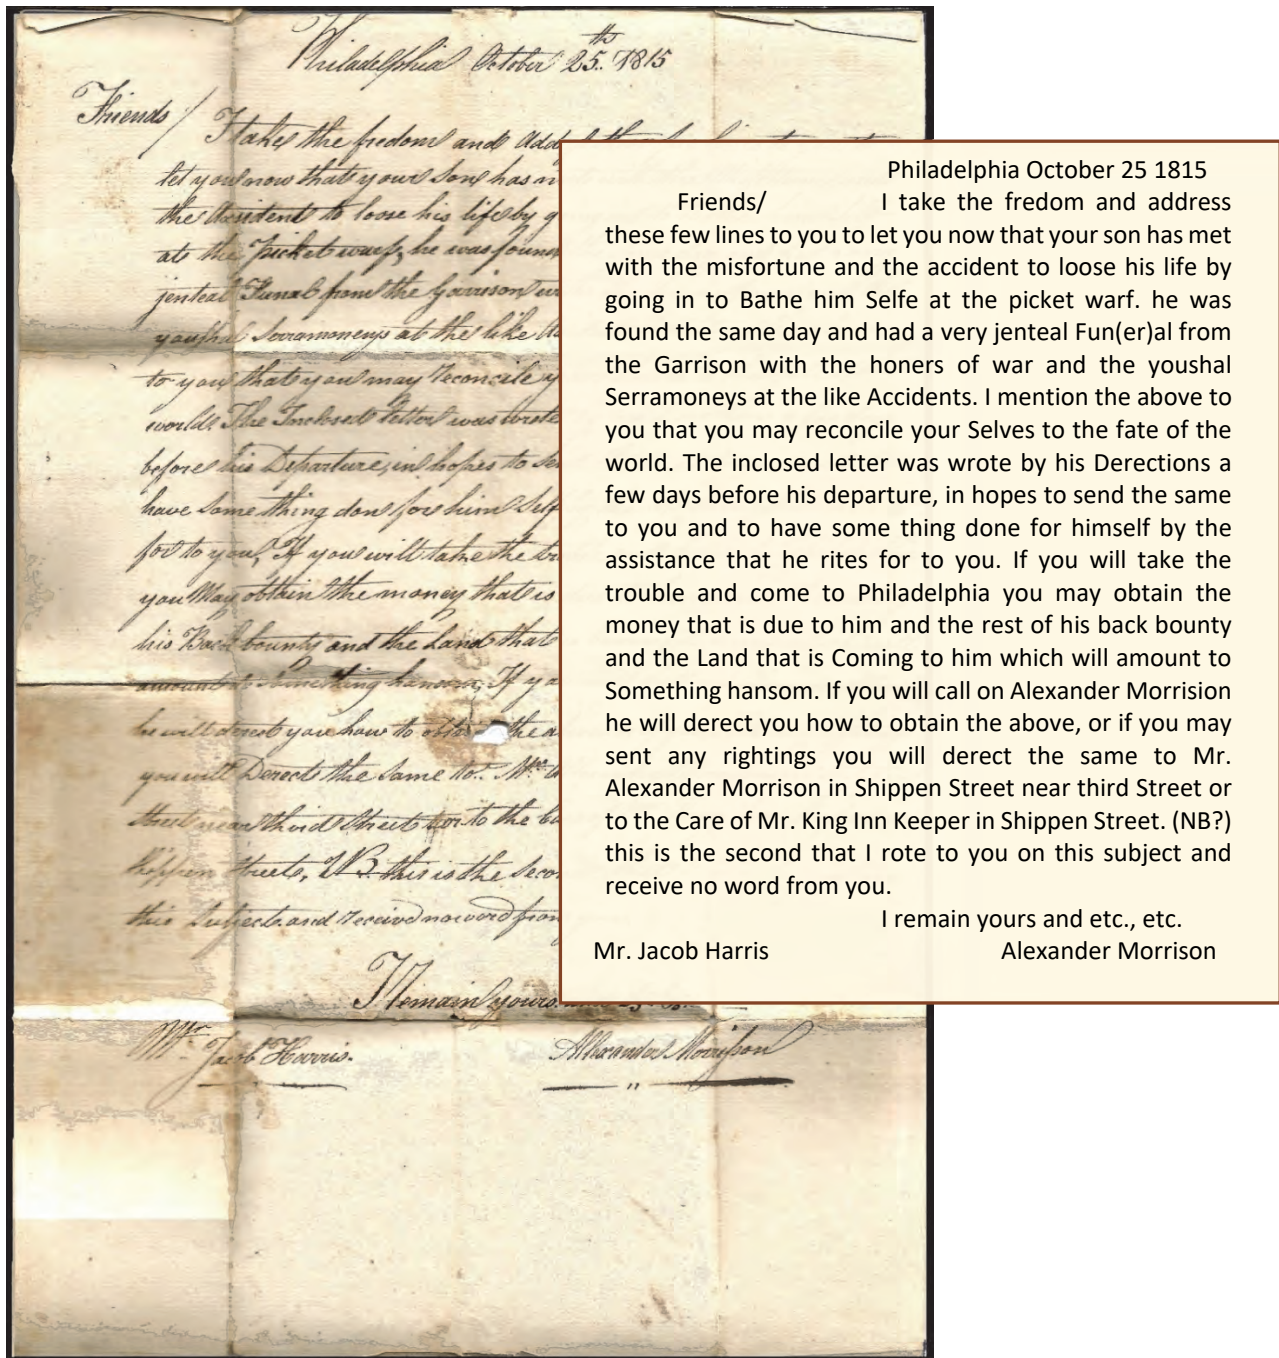 Philadelphia October 25th. 1815
Friends/
I take the fredom and Add
let you now that your Son has m
the Accident to loose his life by g
at the Picket warf, he was foun
jenteal Funal from the Garrison w
youshal Serramoneys at the like Ac
to you that you may Reconcile y
world. The Inclosed letter was wrote
before his Departure, in hopes to se
have some thing don for him Self
for to you, If you will take the tr
you May obtain the money that is
his Back bounty and the Land that
amount to Something hansom, If yo
he will derect you how to obtain the a
you will Derect the same to. Mr. A
Street near third Street or to the Ca
Shippen Street, NB. this is the Seco
this Subject and Receive no word from
I Remain yours
Mr. Jacob Harris.
Alexander Morrison
Philadelphia October 25 1815
Friends/ I take the fredom and address
these few lines to you to let you now that your son has met
with the misfortune and the accident to loose his life by
going in to Bathe him Selfe at the picket warf. he was
found the same day and had a very jenteal Fun(er)al from
the Garrison with the honers of war and the youshal
Serramoneys at the like Accidents. I mention the above to
you that you may reconcile your Selves to the fate of the
world. The inclosed letter was wrote by his Derections a
few days before his departure, in hopes to send the same
to you and to have some thing done for himself by the
assistance that he rites for to you. If you will take the
trouble and come to Philadelphia you may obtain the
money that is due to him and the rest of his back bounty
and the Land that is Coming to him which will amount to
Something hansom. If you will call on Alexander Morrision
he will derect you how to obtain the above, or if you may
sent any rightings you will derect the same to Mr.
Alexander Morrison in Shippen Street near third Street or
to the Care of Mr. King Inn Keeper in Shippen Street. (NB?)
this is the second that I rote to you on this subject and
receive no word from you.
I remain yours and etc., etc.
Mr. Jacob Harris Alexander Morrison